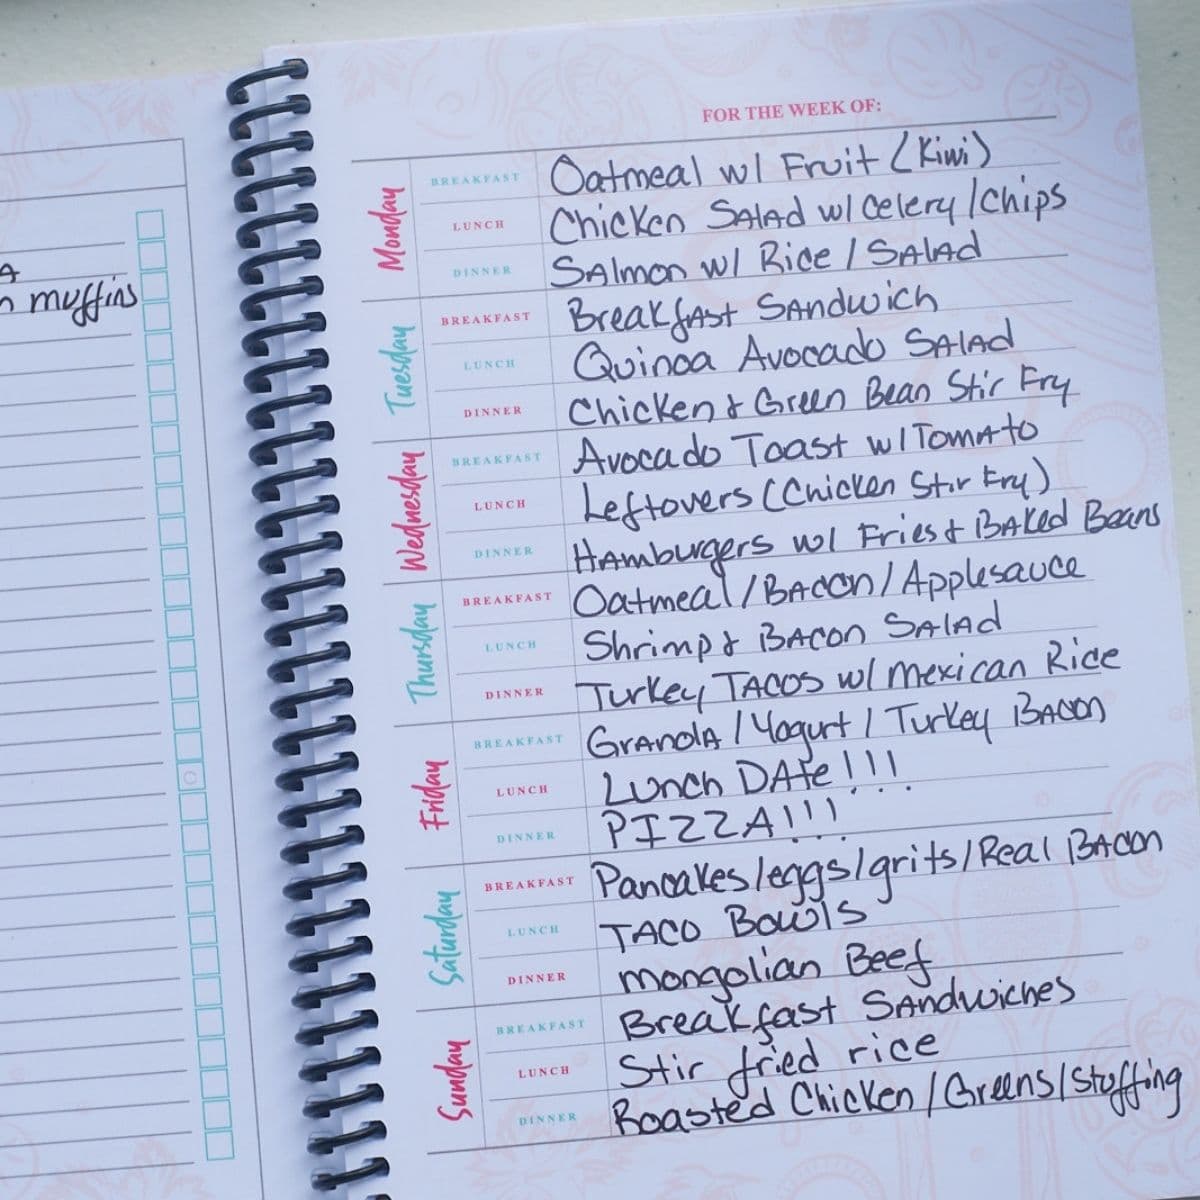 A
muffins
FOR THE WEEK OF:
Monday
BREAKFAST Oatmeal w/ Fruit (Kiwi)
LUNCH Chicken SAlAd w/ Celery / Chips
DINNER SAlmon w/ Rice / SAlAd
Tuesday
BREAKFAST BreakfAst SAndwich
LUNCH Quinoa Avocado SAlAd
DINNER Chicken & Green Bean Stir Fry
Wednesday
BREAKFAST Avocado Toast w/ TomAto
LUNCH Leftovers (Chicken Stir Fry)
DINNER HAmburgers w/ Fries & BAKed Beans
Thursday
BREAKFAST Oatmeal / BAcon / Applesauce
LUNCH Shrimp & BAcon SAlAd
DINNER Turkey TACOS w/ Mexican Rice
Friday
BREAKFAST GrAnolA / Yogurt / Turkey BAcon
LUNCH Lunch DAte!!!
DINNER PIZZA!!!
Saturday
BREAKFAST Pancakes/eggs/grits/Real BAcon
LUNCH TACO Bowls
DINNER mongolian Beef
Sunday
BREAKFAST Breakfast SAndwiches
LUNCH Stir fried rice
DINNER Roasted Chicken / Greens / Stuffing